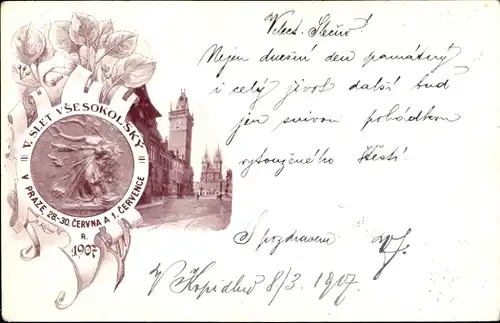 V. SLET VŠESOKOLSKÝ
V PRAZE, 28.-30. ČERVNA A 1. ČERVENCE
R.
1907
Velect. Slečno!
Nejen dnešní den památný
i celý život další buď
jen snivou pohádkou
vytouženého štěstí.
S pozdravem
V Kopidlně 8/3. 1907.